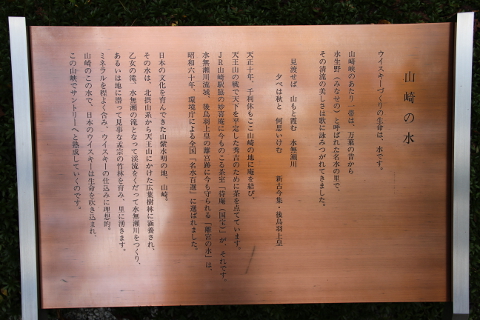 山崎の水
ウイスキーづくりの生命は、水です。
山崎峡のあたり一帯は、万葉の昔から
水生野（みなせの）と呼ばれた名水の里で、
その清流の美しさは歌に詠みつがれてきました。
見渡せば 山もと霞む 水無瀬川
夕べは秋と 何思いけむ
新古今集・後鳥羽上皇
天正十年、千利休もここ山崎の地に庵を結び、
天王山の戦で天下を平定した秀吉のために茶を点てています。
JR山崎駅脇の妙喜庵に今ものこる茶室「待庵」（国宝）が、それです。
水無瀬川流域、後鳥羽上皇の離宮跡に今も守られる「離宮の水」は、
昭和六十年、環境庁による全国「名水百選」に選ばれました。
日本の文化を育んできた山紫水明の地、山崎。
その水は、北摂山系から天王山にかけた広葉樹林に涵養され、
乙女の滝、水無瀬の滝となって渓流をくだって水無瀬川をつくり、
あるいは地に潜って見事な孟宗の竹林を育み、里に湧きます。
ミネラルを程よく含み、ウイスキーの仕込みに理想的。
山崎のこの水で、日本のウイスキーは生命を吹き込まれ、
この山峡でサントリーへと熟成していくのです。